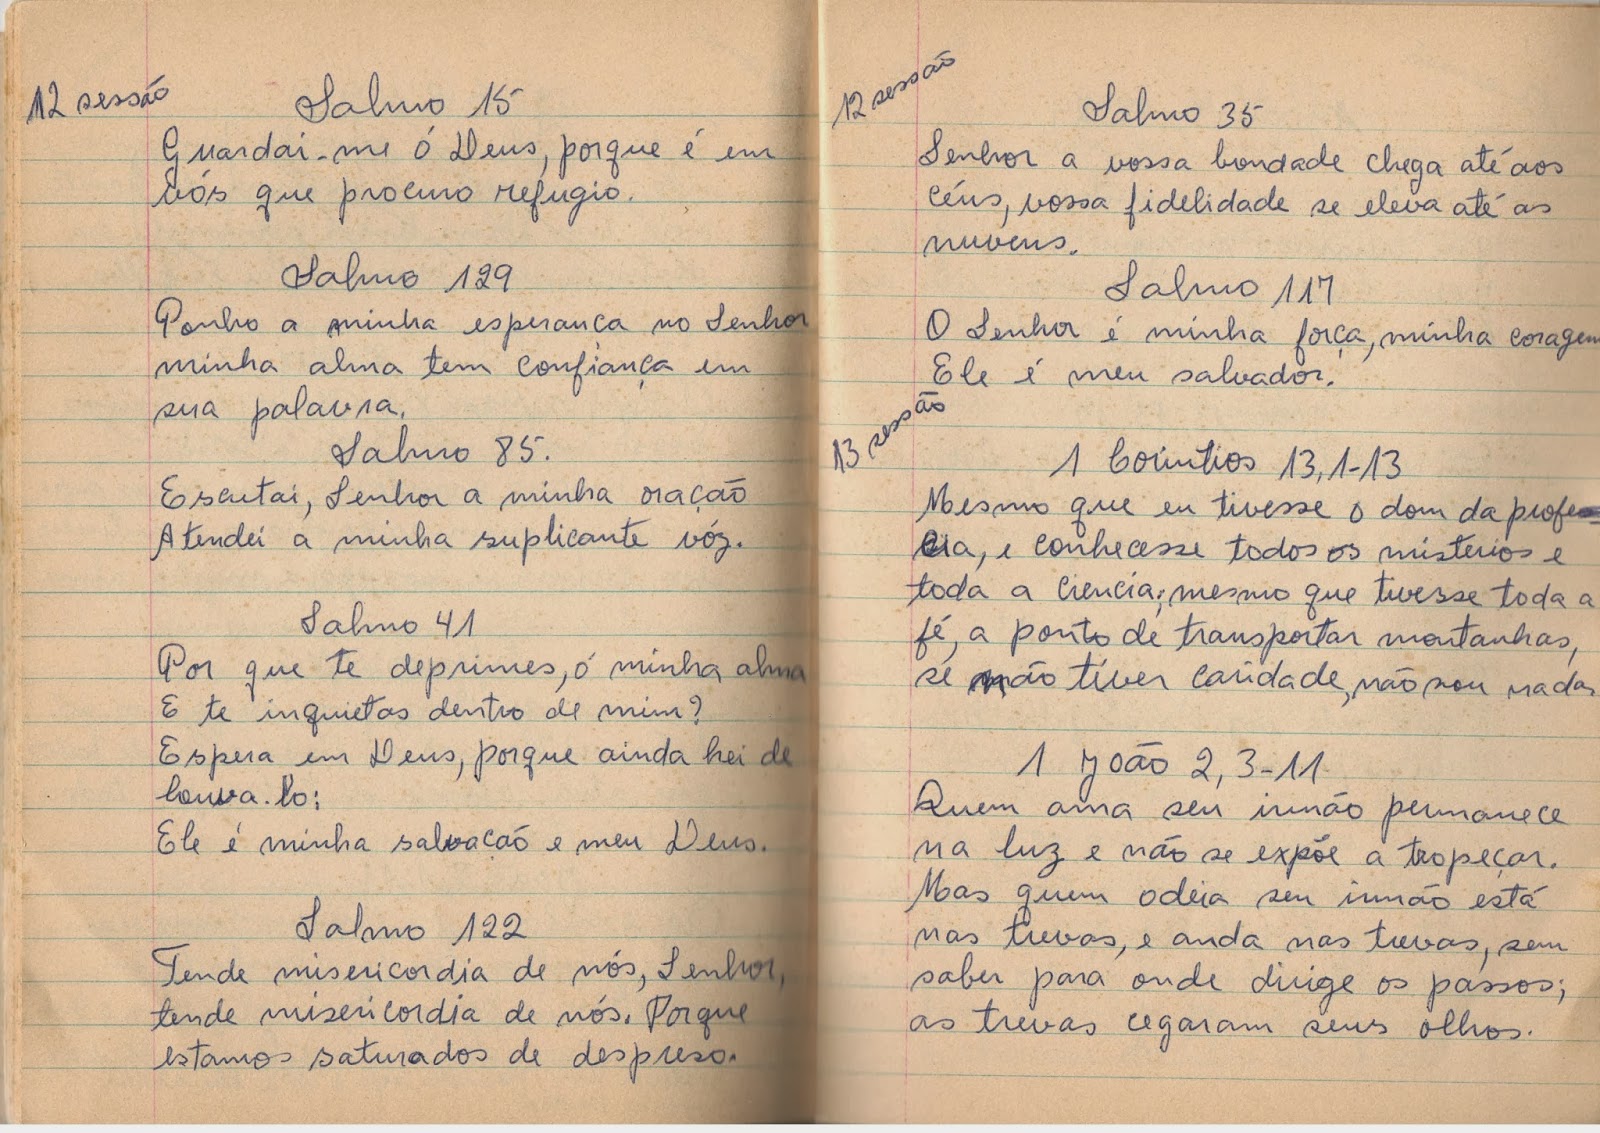 12 sessão
Salmo 15
Guardai-me ó Deus, porque é em
vós que procuro refugio.
Salmo 129
Ponho a minha esperança no Senhor
minha alma tem confiança em
sua palavra.
Salmo 85.
Escutai, Senhor a minha oração
Atendei a minha suplicante vóz.
Salmo 41
Por que te deprimes, ó minha alma
E te inquietas dentro de mim?
Espera em Deus, porque ainda hei de
louva-lo:
Ele é minha salvação e meu Deus.
Salmo 122
Tende misericordia de nós, Senhor,
tende misericordia de nós. Porque
estamos saturados de despreso.
12 sessão
Salmo 35
Senhor a vossa bondade chega até aos
céus, vossa fidelidade se eleva até as
nuvens.
Salmo 117
O Senhor é minha força, minha coragem
Ele é meu salvador.
13 sessão
1 Coríntios 13, 1-13
Mesmo que eu tivesse o dom da profe-
cia, e conhecesse todos os mistérios e
toda a ciencia; mesmo que tivesse toda a
fé, a ponto de transportar montanhas,
se não tiver caridade, não sou nada
1 João 2, 3-11
Quem ama seu irmão permanece
na luz e não se expõe a tropeçar.
Mas quem odeia seu irmão está
nas trevas, e anda nas trevas, sem
saber para onde dirige os passos;
as trevas cegaram seus olhos.